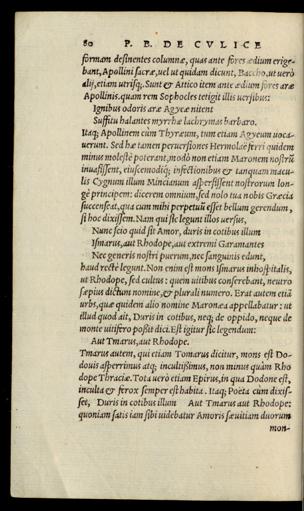 80 P. B. DE CVLICE
formam desinentes columnæ, quas ante fores ædium erige-
bant, Apollini sacræ, uel ut quidam dicunt, Baccho, ut uerò
alij, etiam utrisq;. Sunt & Attico item ante ædium fores aræ
Apollinis. quam rem Sophocles tetigit illis uersibus:
Ignibus odoris aræ Agyææ nitent
Suffitu halantes myrrhæ lachrymas barbaro.
Itaq; Apollinem cùm Thyræum, tum etiam Agyeum uoca-
uerunt. Sed hæ tamen peruersiones Hermolaë ferri quidem
minus molestè poterant, modò non etiam Maronem nostrũ
inuasissent, eiuscemodiq; infectionibus & tanquam macu-
lis Cygnum illum Mincianum aspersissent nostrorum lon-
gè principem: dicerem omnium, sed nolo tua nobis Græcia
succenseat, qua cum mihi perpetuũ esset bellum gerendum,
si hoc dixissem. Nam qui sic legunt illos uersus,
Nunc scio quid sit Amor, duris in cotibus illum
Ismarus, aut Rhodope, aut extremi Garamantes
Nec generis nostri puerum, nec sanguinis edunt,
haud rectè legunt. Non enim est mons Ismarus inhospitalis,
ut Rhodope, sed cultus: quem uitibus conserebant, neutro
sæpius dictum nomine, & plurali numero. Erat autem etiã
urbs, quæ quidem alio nomine Maronæa appellabatur: ut
illud quod ait, Duris in cotibus, neq; de oppido, neque de
monte uitifero possit dici. Est igitur sic legendum:
Aut Tmarus, aut Rhodope.
Tmarus autem, qui etiam Tomarus dicitur, mons est Do-
douis asperrimus atq; incultissimus, non minus quàm Rho
dope Thraciæ. Tota uerò etiam Epirus, in qua Dodone est,
inculta & ferox semper est habita. Itaq; Poëta cùm dixis-
set, Duris in cotibus illum Aut Tmarus aut Rhodope:
quoniam satis iam sibi uidebatur Amoris sæuitiam duorum
mon-